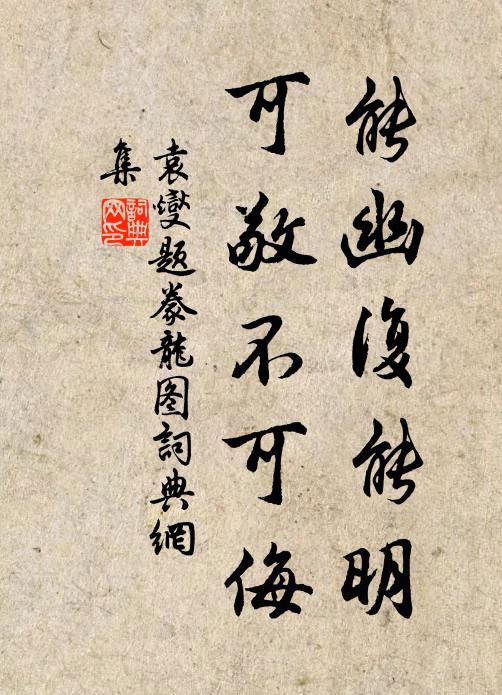 能幽復能明
可敬不可侮
袁燮題豢龍图詞典網
集
詞典
网印